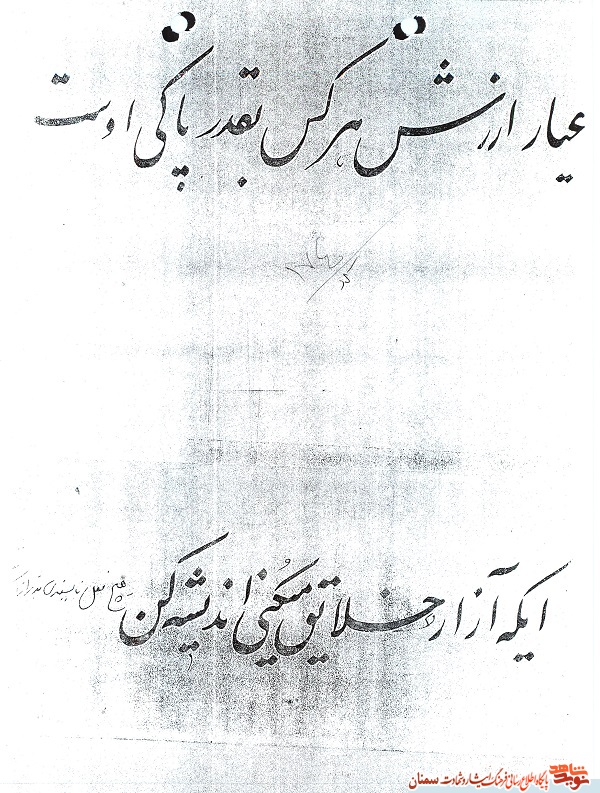 عیار ارزش هر کس بقدر پاکی اوست
ایکه آزار خلایق میکنی اندیشه کن
نوید شاهد
پایگاه اطلاع رسانی فرهنگ ایثار و شهادت سمنان